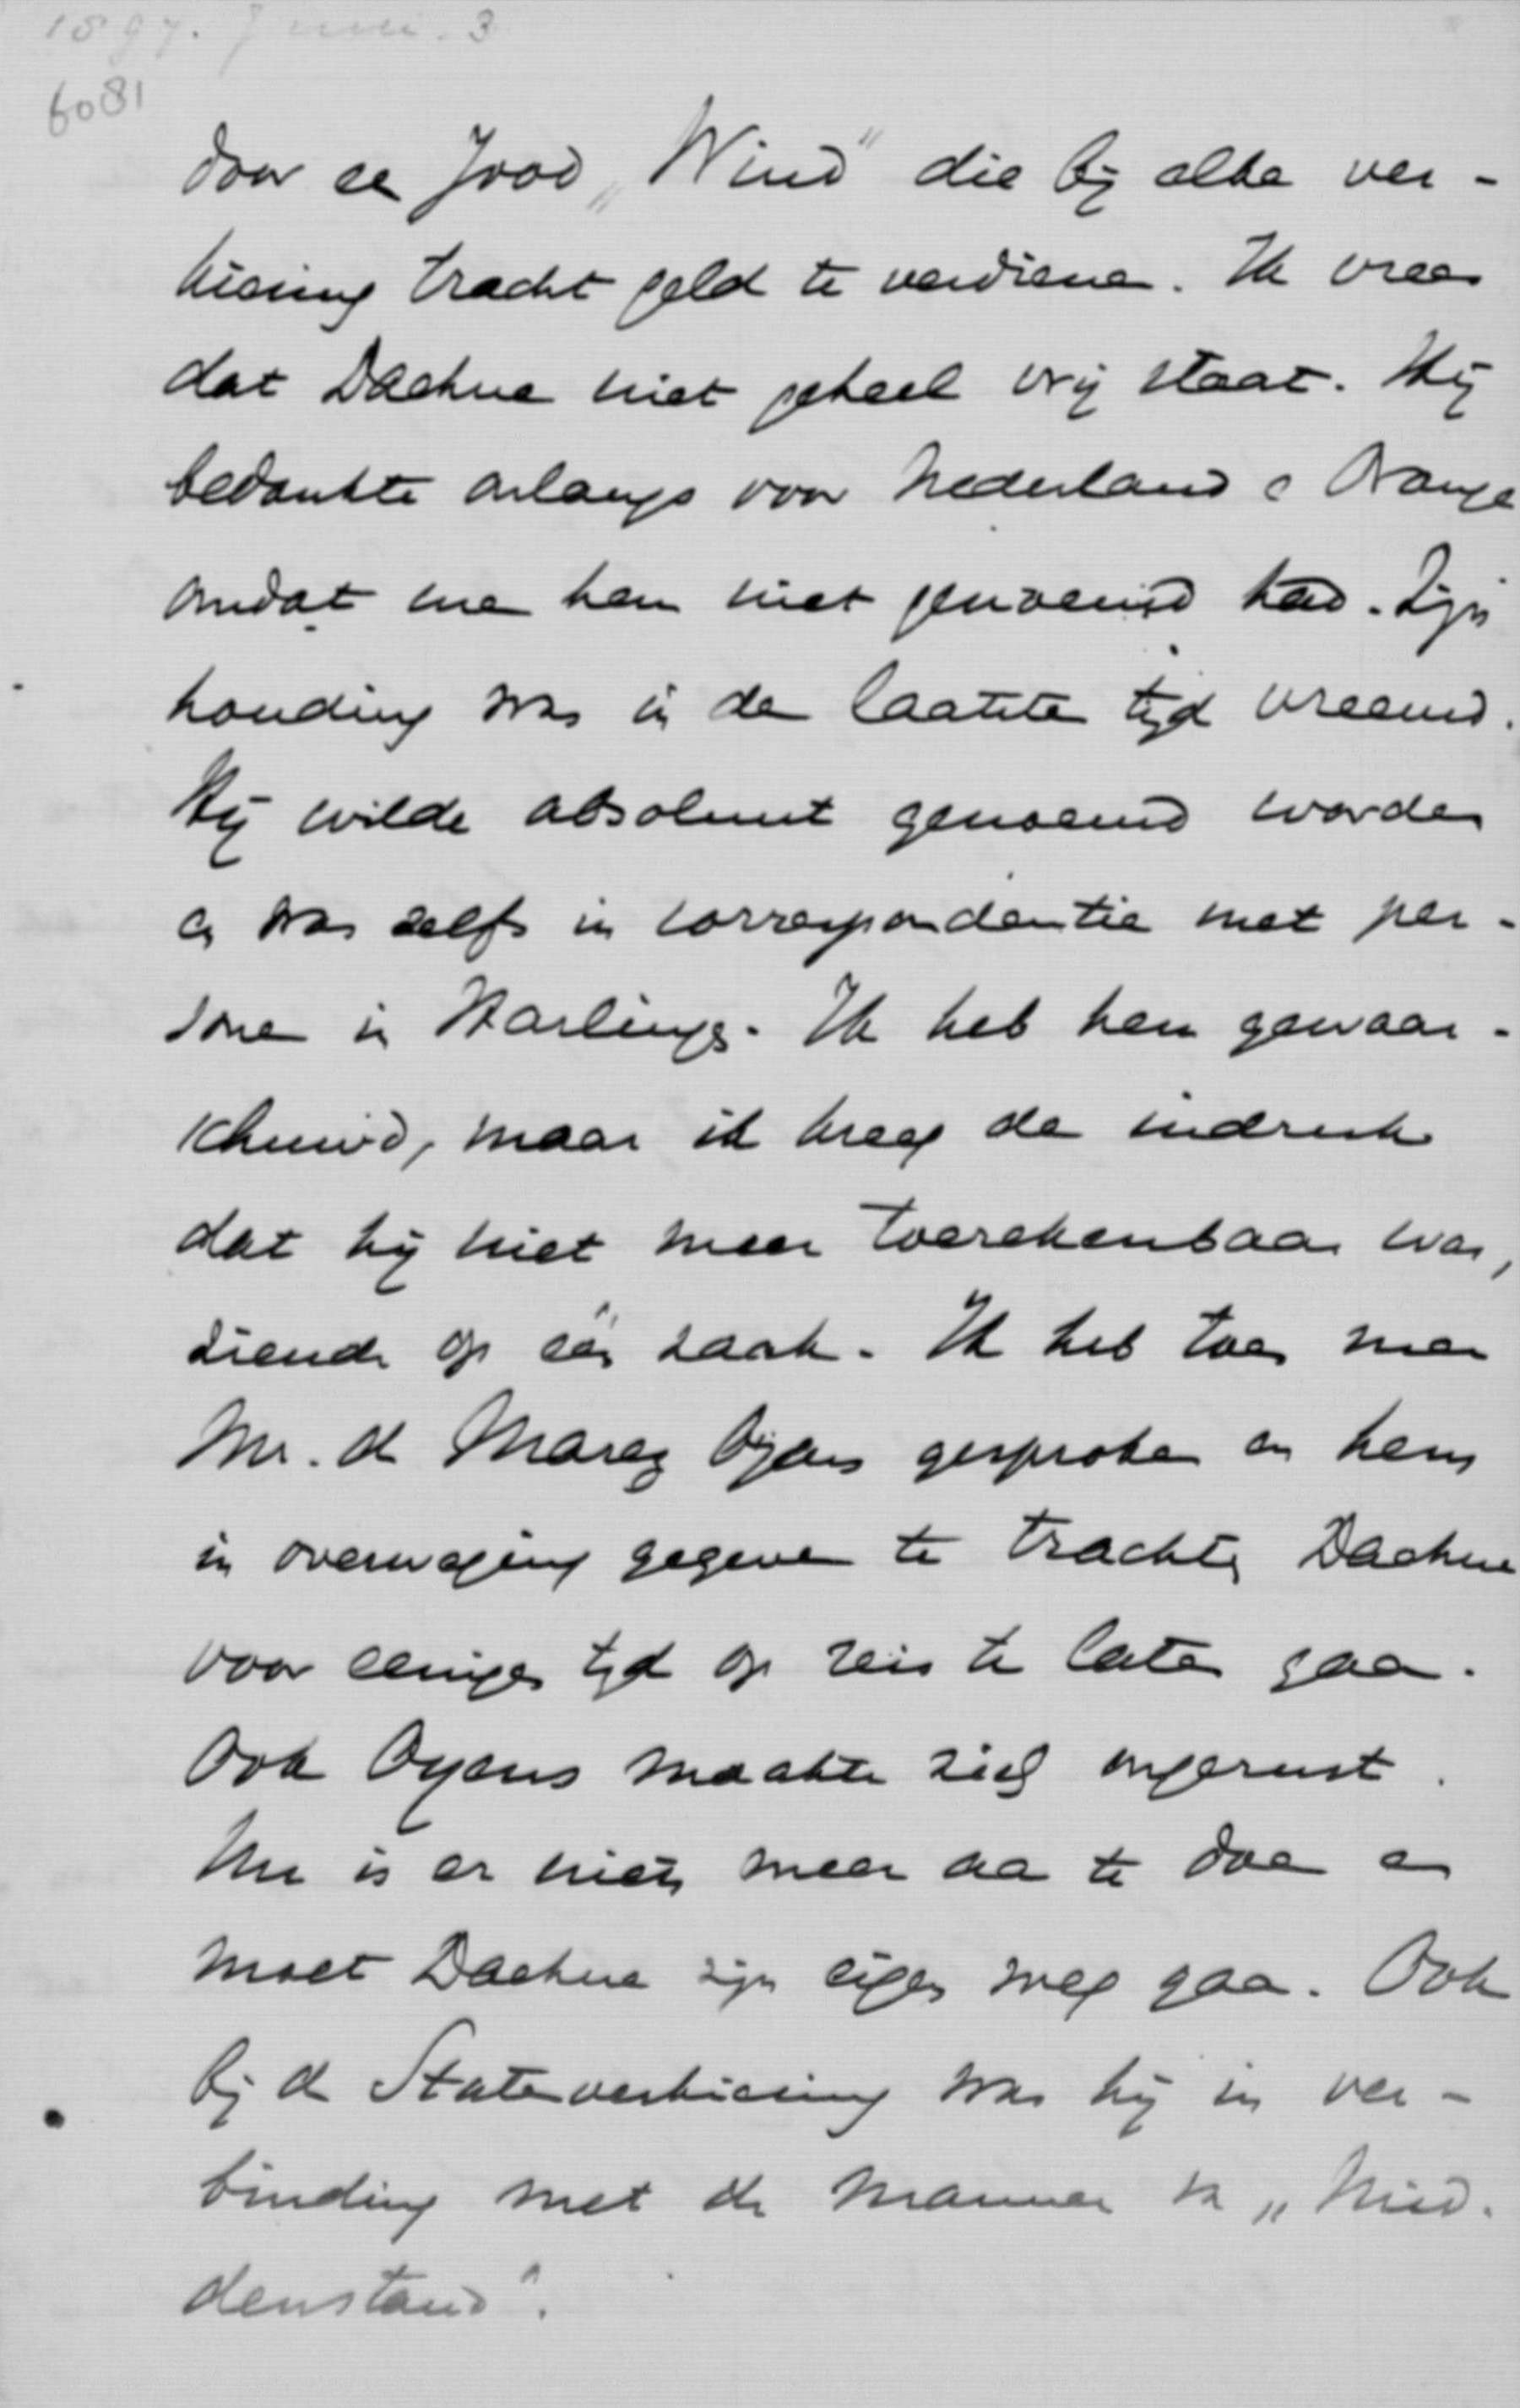 1897. Juni. 3
6081
door een Jood „Wind" die bij elke ver-
kiezing tracht geld te verdienen. Ik vrees
dat Daehne niet geheel vrij staat. Hij
bedankte onlangs voor Nederland en Oranje
omdat men hem niet genoemd had. Zijn
houding was in de laatste tijd vreemd.
Hij wilde absoluut genoemd worden
en was zelfs in correspondentie met per-
sonen in Harlingen. Ik heb hem gewaar-
schuwd, maar ik kreeg de indruk
dat hij niet meer toerekenbaar was,
ziende op één zaak. Ik heb toen
Mr. de Marez Oyens gesproken en hem
in overweging gegeven te trachten Daehne
voor eenigen tijd op reis te laten gaan.
Ook Oyens maakte zich ongerust.
Nu is er niets meer aan te doen en
moet Daehne zijn eigen weg gaan. Ook
bij de Statenverkiezing was hij in ver-
binding met de mannen van „Mid-
denstand".